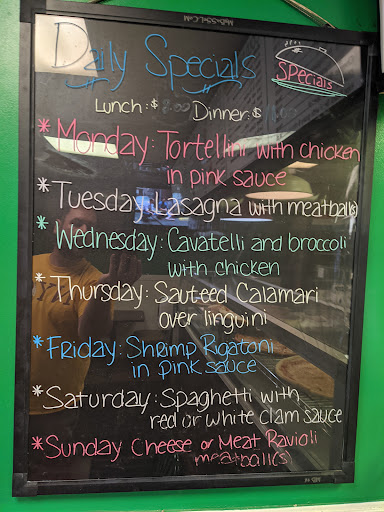 Daily Specials
Specials
Lunch: $ 8.00 Dinner: $
* Monday: Tortellini with chicken
in pink sauce
* Tuesday: Lasagna with meatballs
* Wednesday: Cavatelli and broccoli
with chicken
* Thursday: Sauteed Calamari
over linguini
* Friday: Shrimp Rigatoni
in pink sauce
* Saturday: Spaghetti with
red or white clam sauce
* Sunday Cheese or Meat Ravioli
meatball(s)